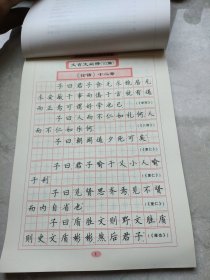 文言文必修(12篇)
《论语》十二章
子曰君子食无求饱居无
求安敏于事而慎于言就有道
而正焉可谓好学也已(《学而》)
子曰人而不仁如礼何人
而不仁如乐何(《八佾》)
子曰朝闻道夕死可矣
(《里仁》)
子曰君子喻于义小人喻
于利(《里仁》)
子曰见贤思齐焉见不贤
而内自省也(《里仁》)
子曰质胜文则野文胜质
则史文质彬彬然后君子(《雍也》)
1